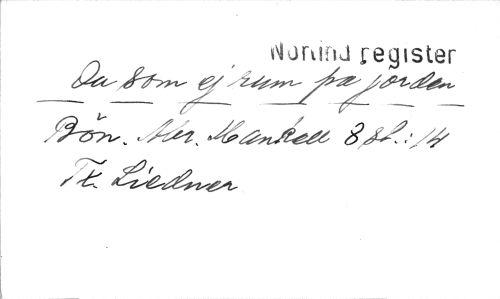 Norlind register
Du som ej rum på jorden
Bön. Abr. Mankell 8 sb.: 14
Tx. Liedner